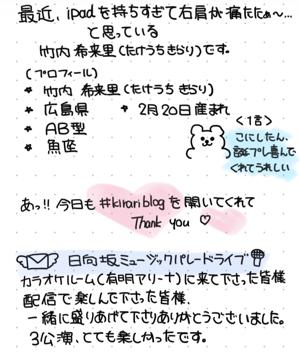 最近、iPadを持ちすぎて右肩が痛たたぁ〜…
と思っている
竹内 希来里(たけうち きらり)です。
(プロフィール)
★ 竹内 希来里(たけうち きらり)
★ 広島県 ★ 2月20日産まれ
★ AB型
★ 魚座
<1言>
こにしたん、
誕プレ喜んで
くれてうれしい
あっ!! 今日も #kirariblogを開いてくれて
Thank you ♡
日向坂ミュージックパレードライブ
カラオケルーム(有明アリーナ)に来て下さった皆様
配信で楽しんで下さった皆様、
一緒に盛りあげて下さりありがとうございました。
3公演、とても楽しかったです。